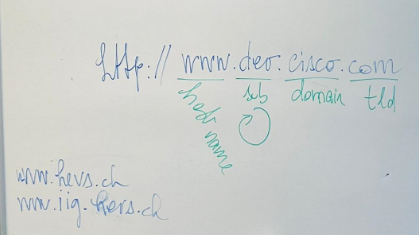 http://www.dev.cisco.com
host name sub domain tld
www.hevs.ch
www.iig.hevs.ch